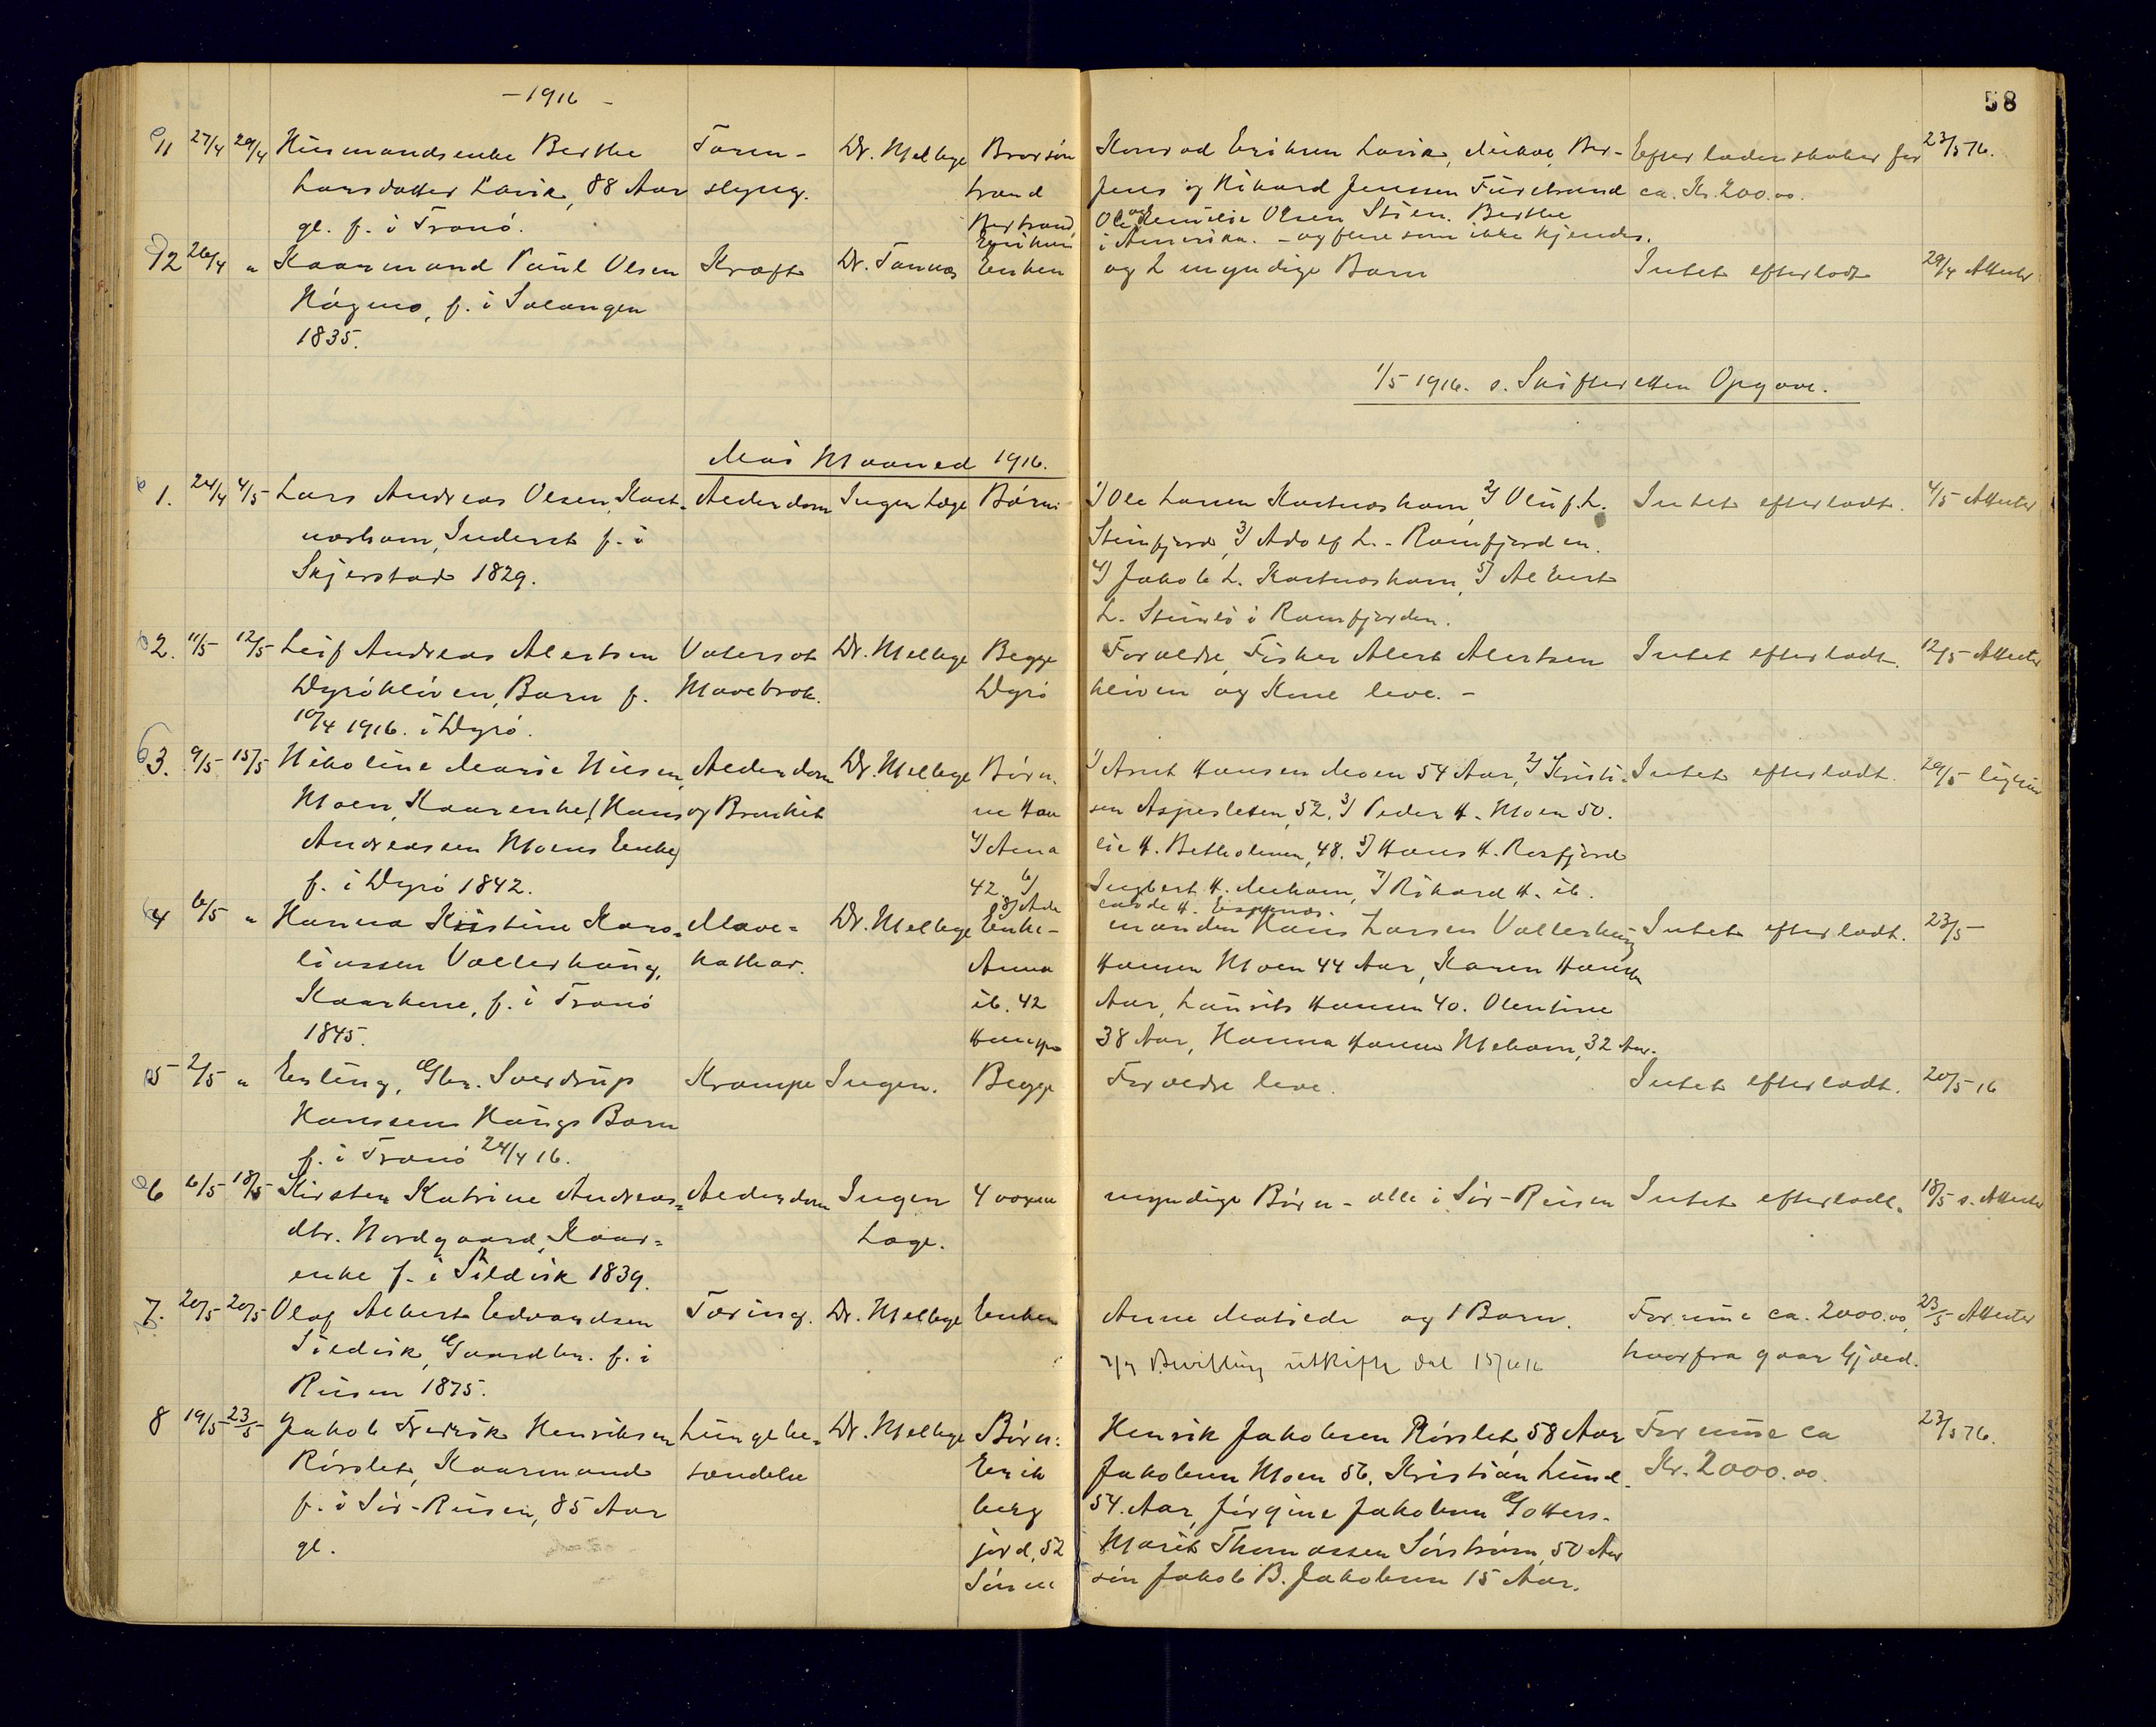 - 1916 -
58
11 27/4 29/4 Husmandsenke Berthe
Larsdatter Lavik, 88 Aar
gl. f. i Tranö.
Tarm-
slyng.
Dr. Melbye
Brorsön
trand
Bertrand
Konrad Eriksen Lavik, Mikal Ber-
Jens og Rikard Jenssen Furstrand
Ole og Emilie Olsen Stien. Berthe
Eriksen i Amerika. - og flere som ikke kjendes.
Efterladenskaber for
ca. Kr. 200.00.
23/5 16.
12 26/4 " Kaarmand Paul Olsen
Högmo, f. i Salangen
1835.
Kræft
Dr. Tønnes
Enken og 2 myndige Barn
Intet efterladt
29/4 Attester
1/5 1916. s. Skifteretten Opgave.
Mai Maaned 1916.
1. 24/4 4/5 Lars Andreas Olsen, Kast-
næshavn, Inderst f. i
Skjerstad 1829.
Alderdom
Ingen Læge
Börn:
1) Ole Larsen Kastneshavn, 2) Oluf L.
Steinfjord, 3) Adolf L. - Ramfjorden.
4) Jakob L. Kastneshavn, 5) Albert
L. Steinli i Ramfjorden.
Intet efterladt.
4/5 Attester
2. 11/5 12/5 Leif Andreas Alertsen
Dyrökliven, Barn f.
10/4 1916. i Dyrö.
Vatersot
Mavebrok.
Dr. Melbye
Begge Forældre, Fisker Alert Alertsen
Dyrökliven og Kone leve. -
Intet efterladt.
12/5 Attester
3. 9/5 15/5 Nikoline Marie Nilsen,
Moen, Kaarenke (Hans
Andreassen Moens Enke)
f. i Dyrö 1842.
Alderdom
og Bronkit
Dr. Melbye
Börn: 1) Arnt Hansen Moen 54 Aar, 2) Kristi-
ne Han sen Aspesleten, 52. 3) Peder H. Moen 50.
4) Ama lie H. Betholmen, 48. 5) Hans H. Rosfjord
42 6) Ingbert H. Mohavn, 7) Rikard H. ib.
8) Ade
Intet efterladt.
29/5
4 6/5 " Hanna Kristine Karo-
liussen Vollerhaug,
Kaarkone, f. i Tranö
1845.
Mave-
kathar.
Dr. Melbye
Enke-manden Hans Larsen Vollerhaug
Anna Hansen Moen 44 Aar, Karen Hansen
ib. 42 Aar, Laurits Hansen 40. Olentine
38 Aar, Hanna Hansen Mohavn, 32 Aar.
Intet efterladt.
23/5
5 2/5 " Erling, Gbr. Sverdrup
Hanssens Haugs Barn
f. i Tranö 24/4 16.
Krampe
Ingen.
Begge Forældre leve.
Intet efterladt.
20/5 16
6 6/5 18/5 Kirsten Katrine Andreas-
dtr. Nordgaard, Kaar-
enke f. i Sildvik 1839.
Alderdom
Ingen
Læge.
4 voxne myndige Börn - alle i Sör-Reisen
Intet efterladt.
18/5 s. Attester
7. 20/5 20/5 Olaf Albert Edvardsen
Sildvik, Gaardbr. f. i
Reisen 1875.
Tæring.
Dr. Melbye
Enken Anne Matilde og 1 Barn.
Bevilling utskifte dat 15/6 16
Formue ca. 2000.00,
hvorfra gaar Gjæld.
23/5 Attester
8 19/5 23/5 Jakob Fredrik Henriksen
Rörslet, Kaarmand
f. i Sör-Reisen, 85 Aar
gl.
Lungebe-
tændelse
Dr. Melbye
Börn: Henrik Jakobsen Rörslet, 58 Aar
Erik Jakobsen Moen 56, Kristian Lund-
berg 54 Aar, Jörgine Jakobsen Gotters-
jord, 52 Marit Thomassen Sörström, 50 Aar
Sönne sön Jakob B. Jakobsen 15 Aar.
Formue ca
Kr. 2000.00.
23/5 16.